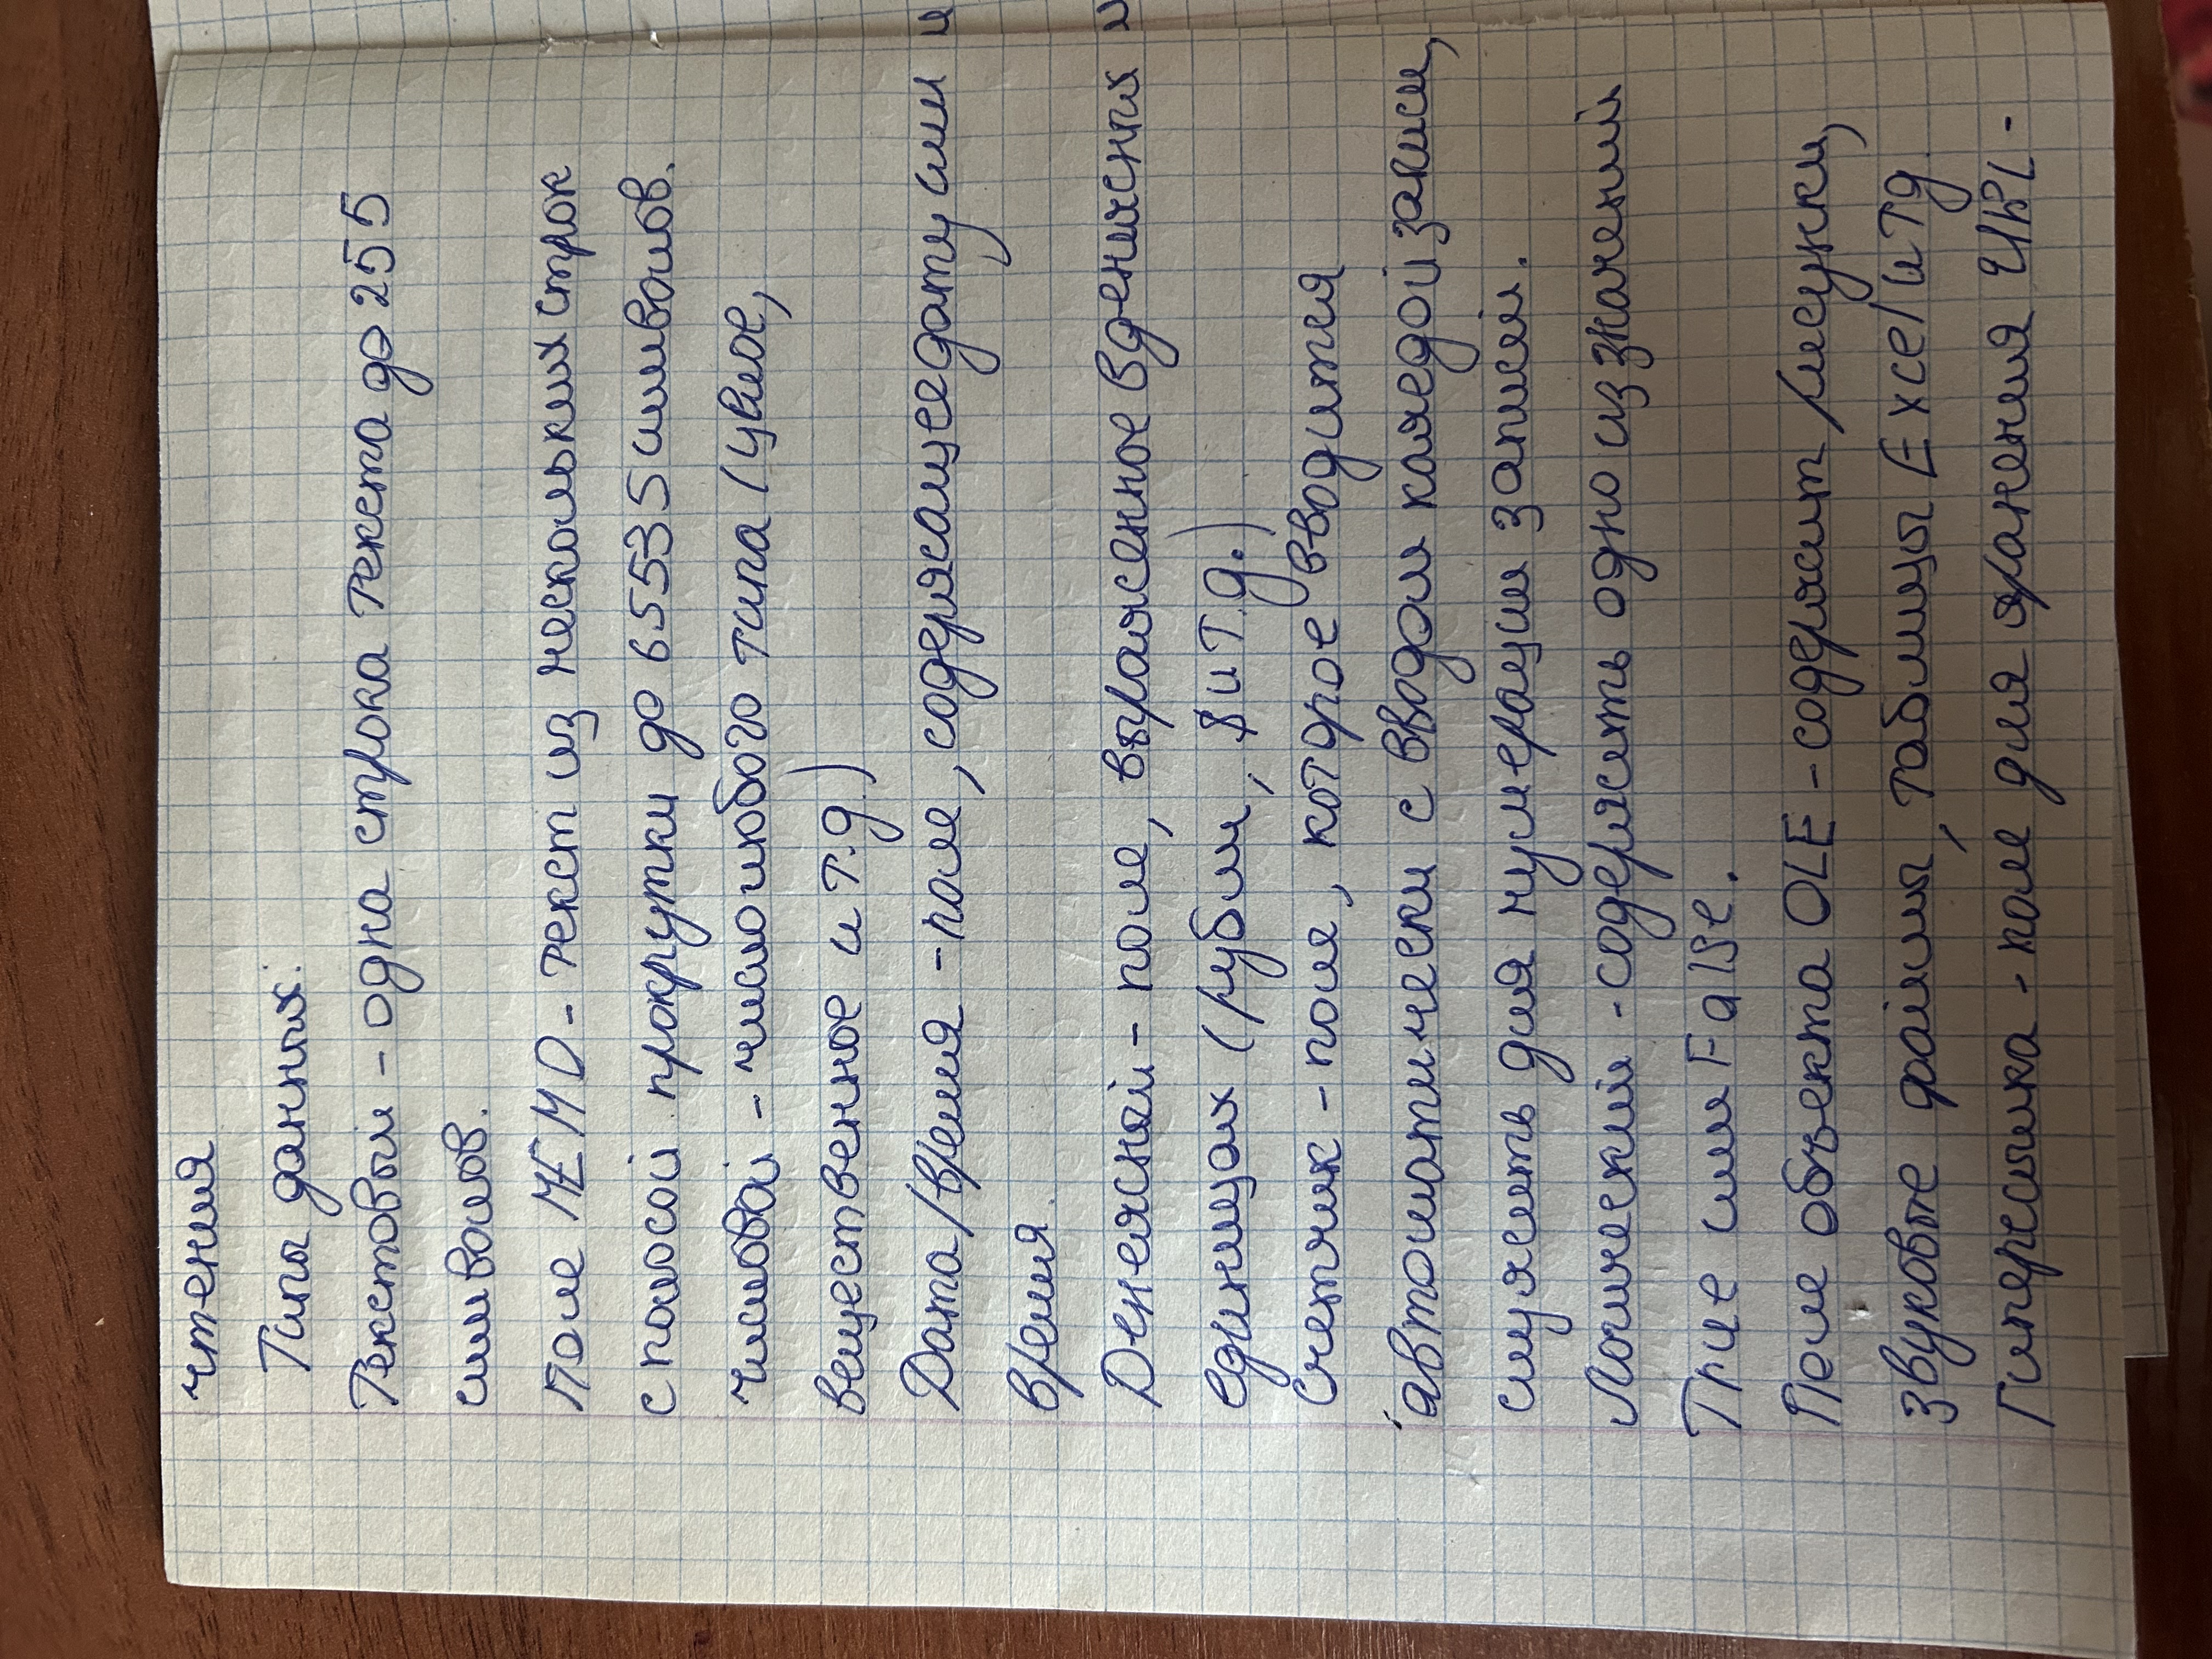 чтения
Типы данных:
Текстовый - одна строка текста до 255
символов.
Поле MEMO - текст из нескольких строк
с полосой прокрутки до 65535 символов.
числовой - число любого типа (целое,
вещественное и т.д.)
Дата/время - поле, содержащее дату или
время.
Денежный - поле, выраженное в денежных
единицах (рубли, $ и т.д.)
Счетчик - поле, которое вводится
автоматически с вводом каждой записи,
служить для нумерации записей.
Логический - содержить одно из значений
True или False.
Поле объекта OLE - содержит рисунки,
звуковые файлы, таблицы Excel и тд
Гиперссылка - поле для хранения URL -